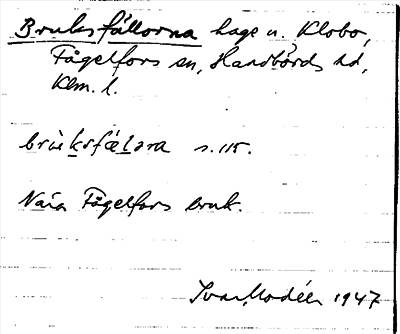 Bruksfällorna hage u. Klobo,
Fågelfors sn, Handbörds hd,
Klm. l.
brùksfælара s. 115.
Nära Fågelfors bruk.
Ivar Modéer 1947